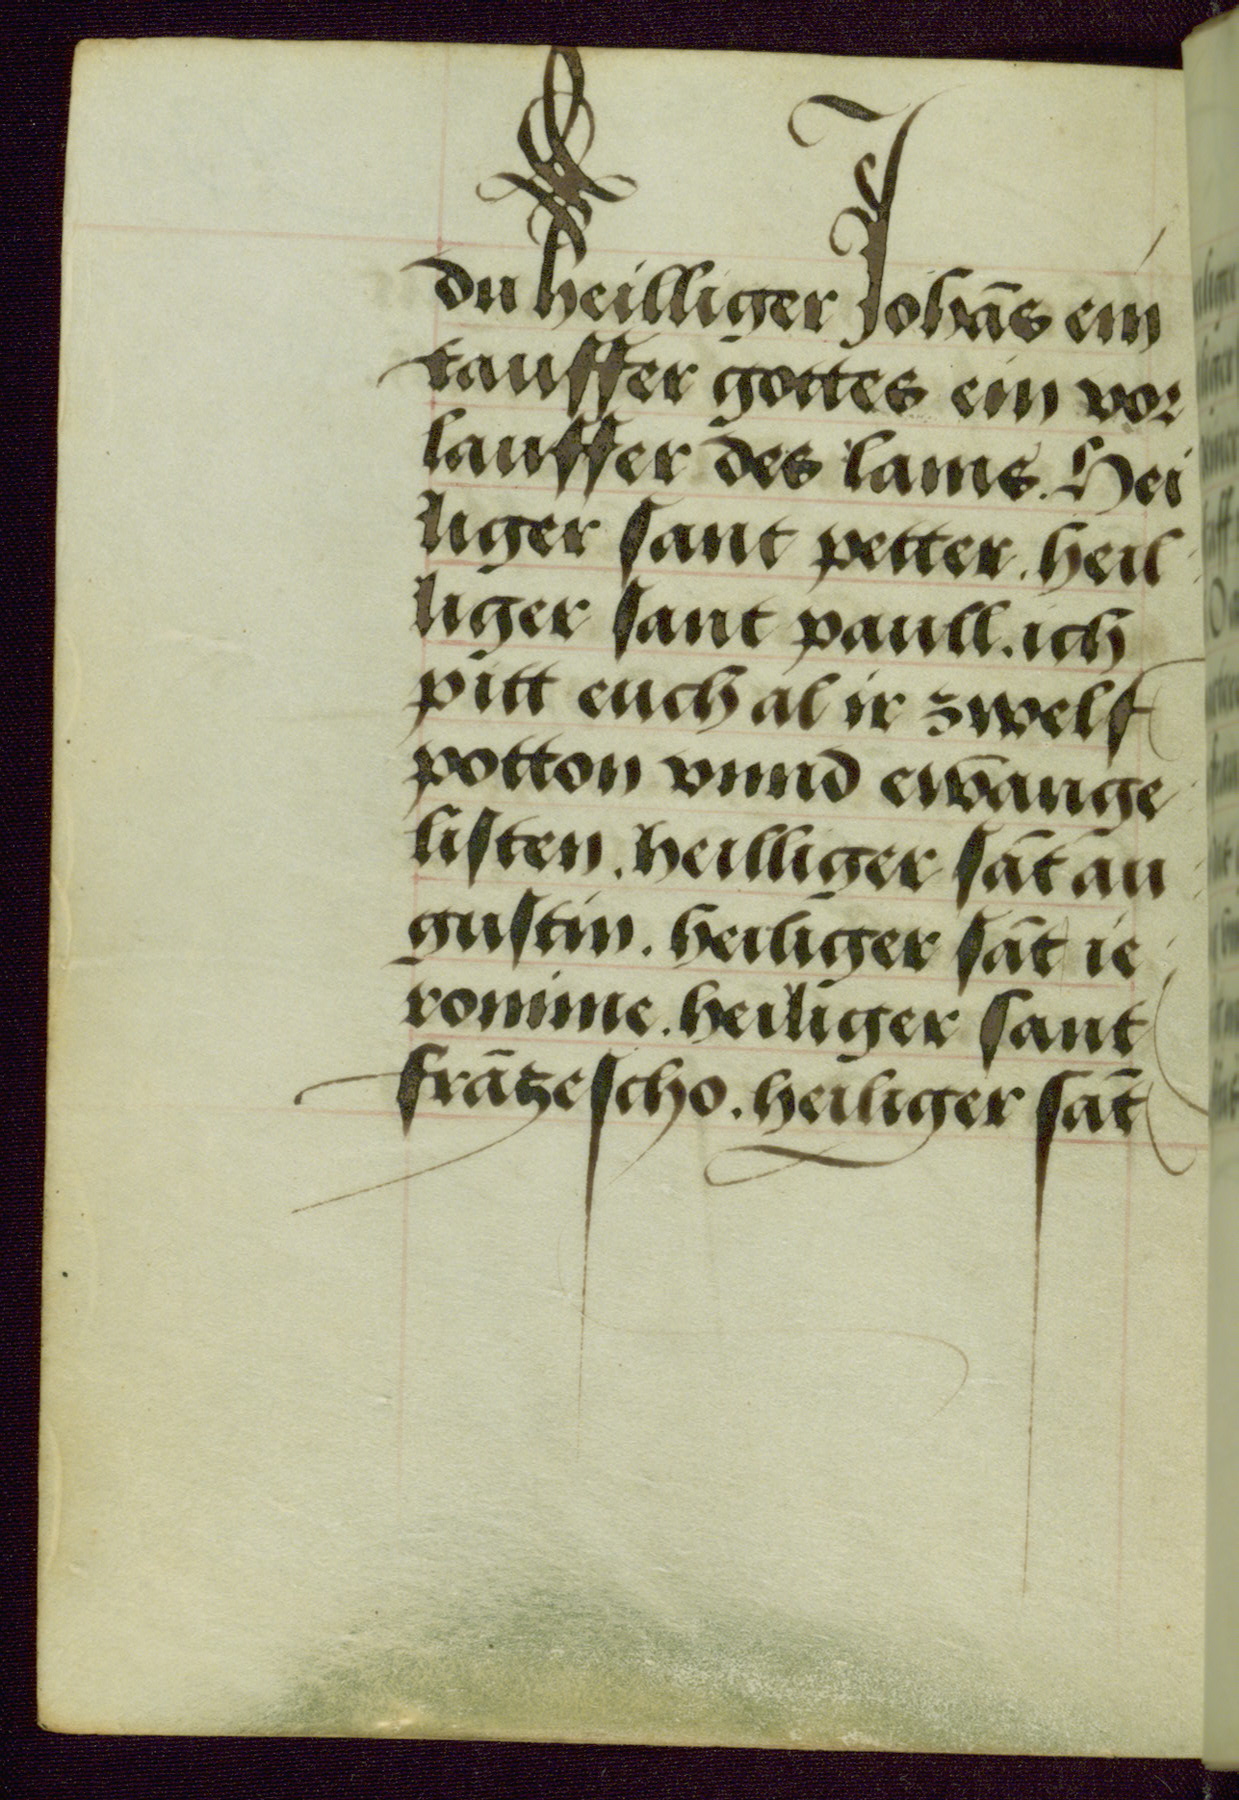 du heilliger Johās ein
tauffer gottes ein vor
lauffer des lams. Hei
liger sant petter. heil
liger sant paull. ich
pitt euch al ir zwelf
potton vnnd ewange
listen. heilliger sāt au
gustin. heiliger sāt ie
ronime. heiliger sant
frāzescho. heiliger sāt